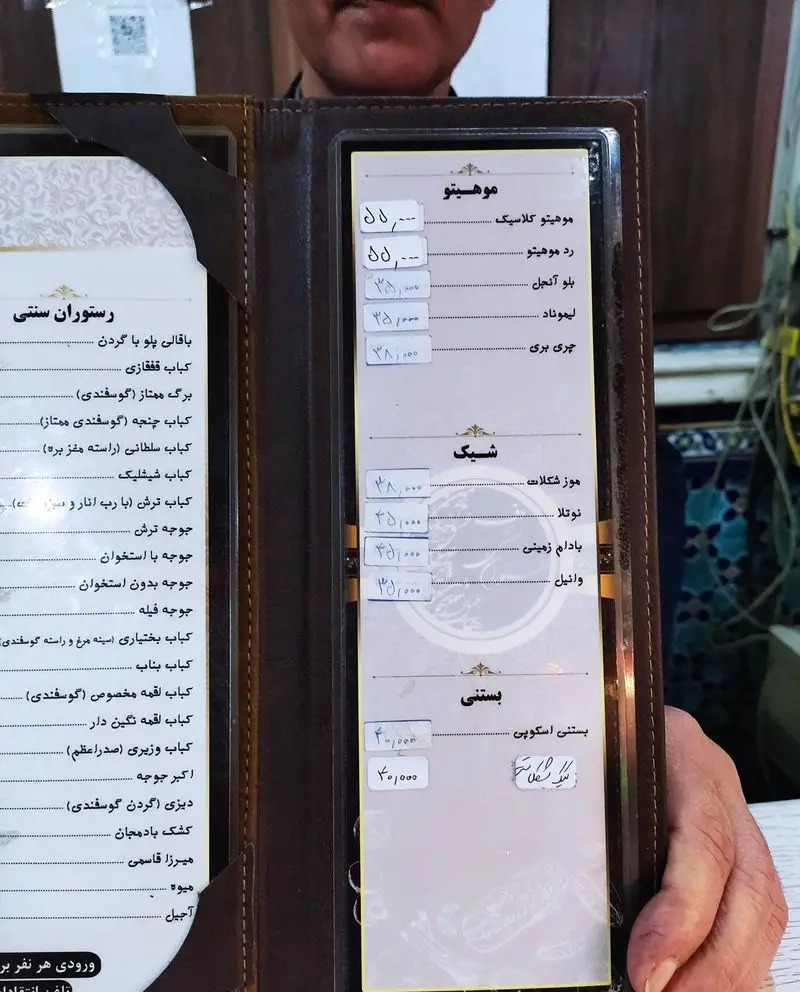 موهیتو
موهیتو کلاسیک ۵۵,۰۰۰
رد موهیتو ۵۵,۰۰۰
بلو آنجل ۳۵,۰۰۰
لیموناد ۳۵,۰۰۰
چری بری ۳۸,۰۰۰
شیک
موز شکلات ۳۸,۰۰۰
نوتلا ۴۵,۰۰۰
بادام زمینی ۴۵,۰۰۰
وانیل ۳۵,۰۰۰
بستنی
بستنی اسکوپی ۴۰,۰۰۰
کیک ۴۰,۰۰۰
رستوران سنتی
باقالی پلو با گردن
کباب قفقازی
برگ ممتاز (گوسفندی)
کباب چنجه (گوسفندی ممتاز)
کباب سلطانی (راسته مغز بره)
کباب شیشلیک
کباب ترش (با رب انار و
جوجه ترش
جوجه با استخوان
جوجه بدون استخوان
جوجه فیله
کباب بختیاری (سینه مرغ و راسته گوسفندی)
کباب بناب
کباب لقمه مخصوص (گوسفندی)
کباب لقمه نگین دار
کباب وزیری (صدراعظم)
اکبر جوجه
دیزی (گردن گوسفندی)
کشک بادمجان
میرزا قاسمی
میوه
آجیل
ورودی هر نفر
تلفن